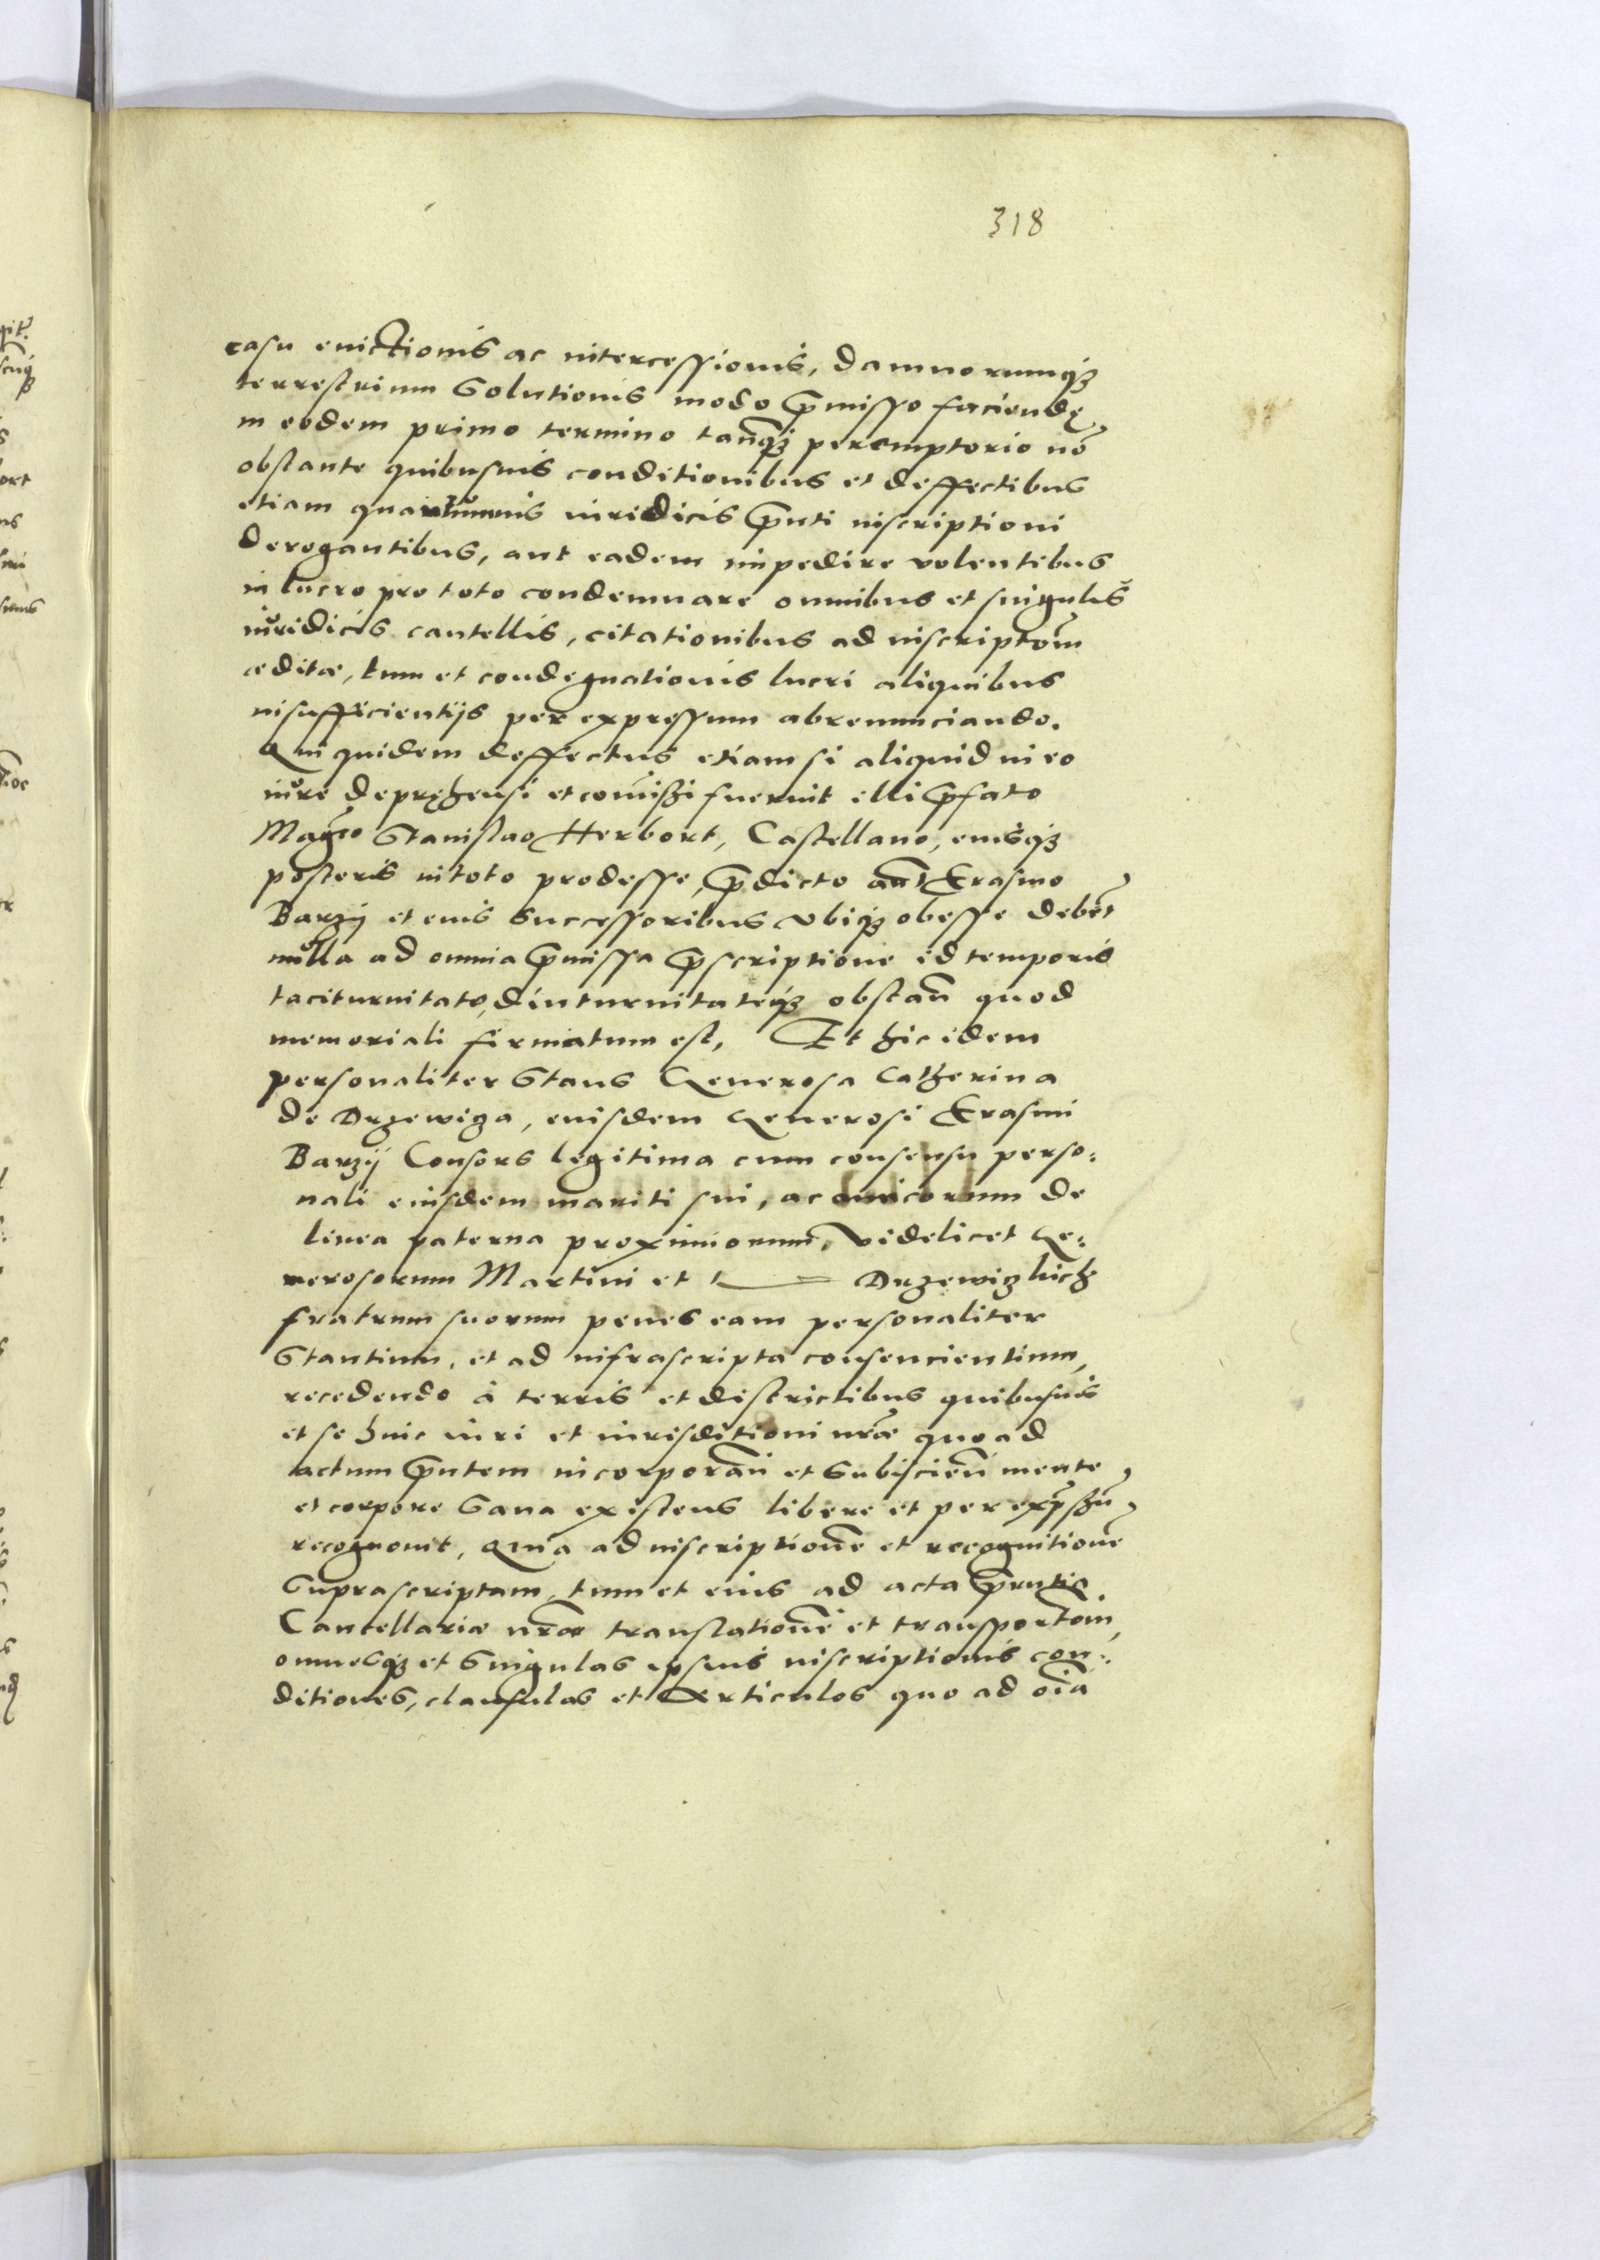 318
casu evictionis ac intercessionis, damnorumq₃
terrestrium solutionis modo p̄misso faciendę
in eodem primo termino tanq̄₃ peremptorio nō
obstante quibusuis conditionibus et deffectibus
etiam quantumuis iuridicis p̄nti inscriptioni
derogantibus, aut eadem impedire volentibus
in lucro pro toto condemnare omnibus et singulis
iuridicis cautellis, citationibus ad inscriptōm
æditæ, tum et condegnationis lucri aliquibus
insufficientijs per expressum abrenunciando.
Qui quidem deffectus etiam si aliquid in eo
iure deprehensi et comissi fuerint elli p̄fato
Magco Stanislao Herbort, Castellano, eiusq₃
posteris in toto prodesse, p̄dicto aut̄ Erasmo
Barzij et eius successoribus vbiq₃ obesse debēt
nulla ad omnia p̄missa p̄scriptione id temporis
taciturnitate, diuturnitateq₃ obstān quod
memoriali firmatum est, Et hic idem
personaliter stans Generosa Catherina
de Drzewiza, eiusdem Generosi Erasmi
Barzij Consors legitima cum consensu perso:
nali eiusdem mariti sui, ac amicorum de
linea paterna proximiorum, videlicet Ge:
nerosorum Martini et Drzewizkich
fratrum suorum penes eam personaliter
stantium, et ad infrascripta consencientium,
recedendo à terris et districtibus quibusuis
et se huic iuri et iurisditioni nr̄æ quo ad
actum p̄ntem incorporān et subiscien̄ mente
et corpore sana existens libere et per exp̄ssū
recognouit, Quia ad inscriptionē et recognitionē
suprascriptam, tum et eius ad acta p̄ntis
Cancellariæ nr̄æ translationē et transportōm,
omnesq₃ et singulas ipsius inscriptionis con:
ditiones, clausulas et Articulos quo ad oīa